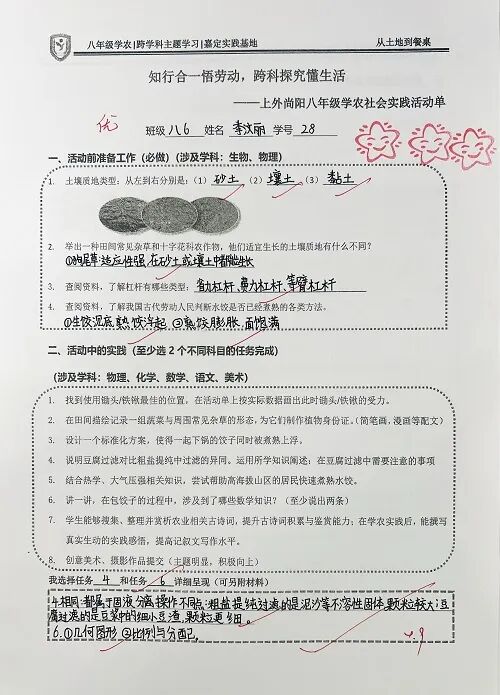 八年级学农|跨学科主题学习|嘉定实践基地 从土地到餐桌
知行合一悟劳动，跨科探究懂生活
——上外尚阳八年级学农社会实践活动单
优
班级 八6 姓名 李汶丽 学号 28
一、活动前准备工作（必做）（涉及学科：生物、物理）
1. 土壤质地类型：从左到右分别是：（1）砂土（2）壤土（3）黏土
2. 举出一种田间常见杂草和十字花科农作物，他们适宜生长的土壤质地有什么不同？
①狗尾草:适应性强,在砂土或壤土中都能生长
3. 查阅资料，了解杠杆有哪些类型：省力杠杆、费力杠杆、等臂杠杆
4. 查阅资料，了解我国古代劳动人民判断水饺是否已经煮熟的各类方法。
①生饺沉底,熟饺浮起 ②熟饺膨胀,面饱满
二、活动中的实践（至少选2个不同科目的任务完成）
（涉及学科：物理、化学、数学、语文、美术）
1. 找到使用锄头/铁锹最佳的位置，在活动单上按实际数据画出此时锄头/铁锹的受力。
2. 在田间描绘记录一组蔬菜与周围常见杂草的形态，为它们制作植物身份证。（简笔画，漫画等配文）
3. 设计一个标准化方案，使得一起下锅的饺子同时被煮熟上浮。
4. 说明豆腐过滤对比粗盐提纯中过滤的异同。运用所学知识阐述：在豆腐过滤中需要注意的事项
5. 结合热学、大气压强相关知识，尝试帮助高海拔山区的居民快速煮熟水饺。
6. 讲一讲，在包饺子的过程中，涉及到了哪些数学知识？（至少说出两条）
7. 学生能够搜集、整理并赏析农业相关古诗词，提升古诗词积累与鉴赏能力；在学农实践后，能撰写
真实生动的实践感悟，提高记叙文写作水平。
8. 创意美术、摄影作品提交（主题明显，积极向上）
我选择任务 4 和任务 6 详细呈现（可另附材料）
4.相同:都属于固液分离操作不同点:粗盐提纯过滤的是泥沙等不溶性固体,颗粒较大;豆
腐过滤的是豆浆中的细小豆渣,颗粒更细。
6.①几何图形 ②比例与分配